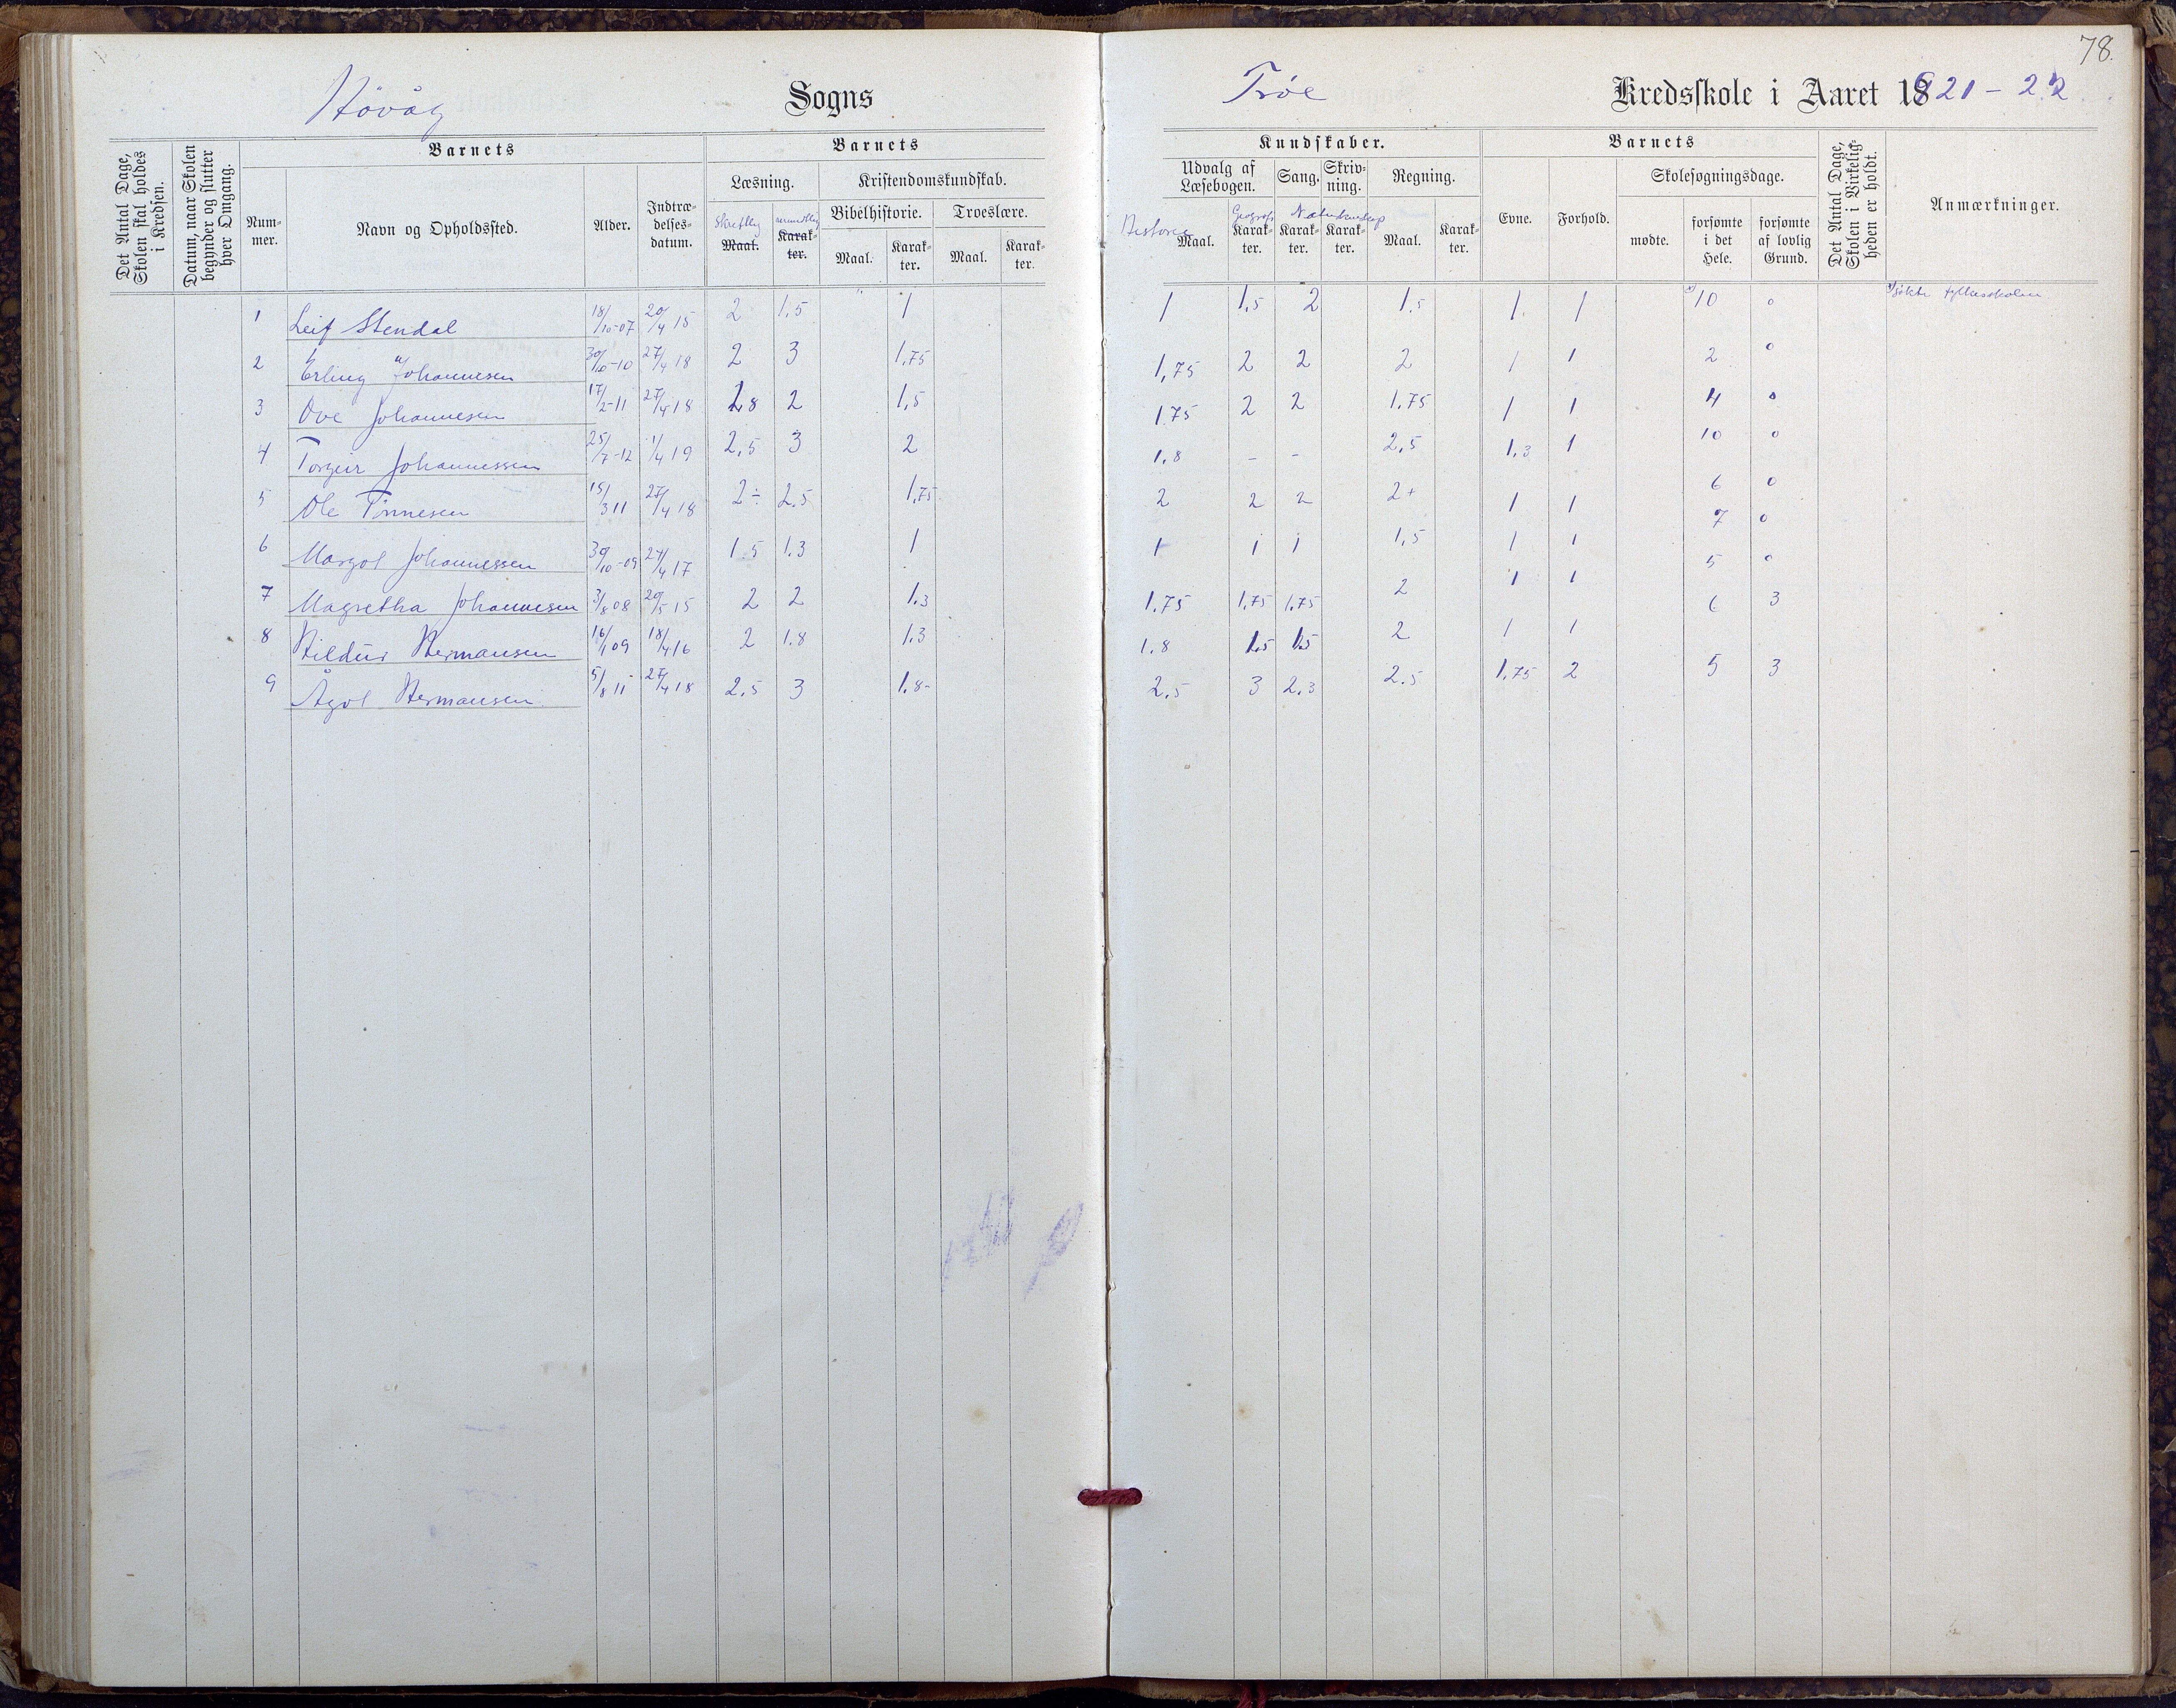 78.
Høvåg Sogns
Trøe Kredsskole i Aaret 1921-22.
Det Antal Dage, Skolen skal holdes i Kredsen.
Datum, naar Skolen begynder og slutter hver Omgang.
Barnets
Num-mer.
Navn og Opholdssted.
Alder.
Indtræ-delses-datum.
Barnets
Læsning.
Skriftlig Maal.
mundtlig Karak-ter.
Kristendomskundskab.
Bibelhistorie.
Maal.
Karak-ter.
Troeslære.
Maal.
Karak-ter.
Kundskaber.
Udvalg af Læsebogen.
Historie Maal.
Geografi Karak-ter.
Sang.
Skriv-ning.
Naturkundskap
Karak-ter.
Karak-ter.
Regning.
Maal.
Karak-ter.
Barnets
Evne.
Forhold.
Skolesøgningsdage.
mødte.
forsømte i det Hele.
forsømte af lovlig Grund.
Det Antal Dage, Skolen i Virkelig-heden er holdt.
Anmærkninger.
1 Leif Stendal 18/10-07 20/4 15 2 1.5 1 1 1,5 2 1.5 1 1 x) 10 0 x) søkte fylkesskolen
2 Erling Johannesen 30/10-10 27/4 18 2 3 1,75 1,75 2 2 2 1 1 2 0
3 Ove Johannesen 17/2-11 27/4 18 1,8 2 1,5 1.75 2 2 1.75 1 1 4 0
4 Torgeir Johannessen 25/7-12 1/4 19 2,5 3 2 1,8 - - 2,5 1.3 1 10 0
5 Ole Tinnesen 15/3 11 27/4 18 2÷ 2,5 1,75 2 2 2 2+ 1 1 6 0
6 Margot Johannessen 30/10-09 27/4 17 1.5 1.3 1 1 1 1 1,5 1 1 7 0
7 Magretha Johannesen 3/8 08 20/5 15 2 2 1.3 1.75 1,75 1,75 2 1 1 5 0
8 Hildur Hermansen 16/1 09 18/4 16 2 1.8 1.3 1.8 1.5 1.5 2 1 1 6 3
9 Ågot Hermansen 5/8 11 27/4 18 2,5 3 1.8- 2,5 3 2,3 2.5 1,75 2 5 3